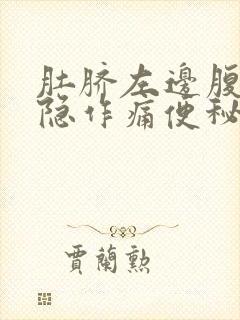 肚脐左邊腹
隐作痛便秘
賈蘭勲